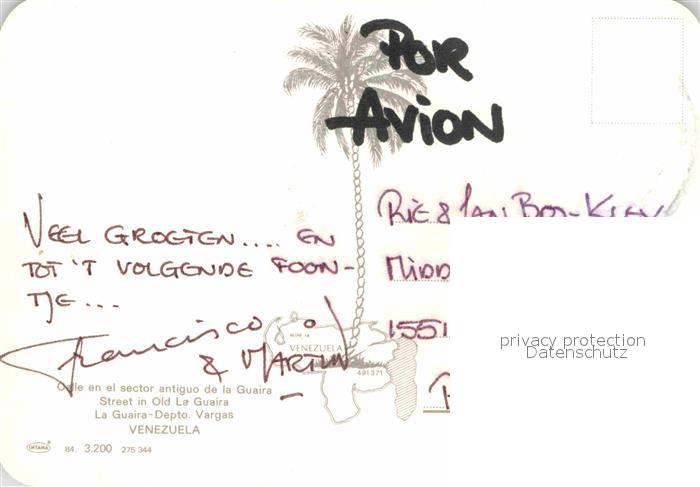 POR
AVION
VEEL GROETEN.... EN
TOT 'T VOLGENDE FOON-
TJE...
Francisco
& MARTIN
RIE & JAN BOS-
MIDD
1551
privacy protection
Datenschutz
VENEZUELA
491371
Calle en el sector antiguo de la Guaira
Street in Old La Guaira
La Guaira-Depto. Vargas
VENEZUELA
INTANA 84. 3.200 275 344